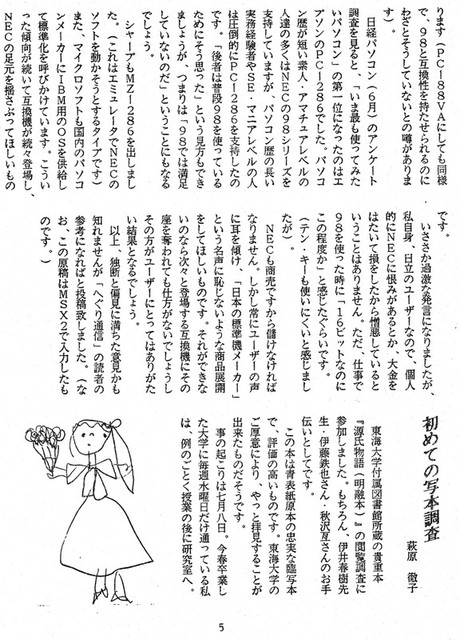 ります（PC-88VAにしても同様
で、98と互換性を持たせられるのに
わざとそうしていないとの噂がありま
す）。
日経パソコン（6月）のアンケート
調査を見ると、「いま最も使ってみた
いパソコン」の第一位になったのはエ
プソンのPC-286でした。パソコ
ン歴が短い素人・アマチュアレベルの
人達の多くはNECの98シリーズを
支持していますが、パソコン歴の長い
実務経験者やSE・マニアレベルの人
は圧倒的にPC-286を支持したの
です。「後者は普段98を使っている
ためにそう思った」という見方もでき
ましょうが、つまりは「98では満足
していないのだ」ということにもなる
でしょう。
シャープもMZ-286を出しまし
た。（これはエミュレータでNECの
ソフトを動かそうとするタイプです）
また、マイクロソフトも国内のパソコ
ンメーカーにIBM用のOSを供給し
て標準化を呼びかけています。こうい
った傾向が続いて互換機が続々登場し、
NECの足元を揺さぶってほしいもの
です。
いささか過激な発言になりましたが、
私自身、日立のユーザーなので、個人
的にNECに恨みがあるとか、大金を
はたいて損をしたから憎悪していると
いうことはありません。ただ、仕事で
98を使った時に「16ビットなのに
この程度か」と感じたぐらいです。
（テン・キーも使いにくいと感じまし
たが）。
NECも商売ですから儲けなければ
なりません。しかし常にユーザーの声
に耳を傾け、「日本の標準機メーカー」
という名声に恥じないような商品展開
をしてほしいものです。それができな
いのなら次々と登場する互換機にその
座を奪われても仕方がないでしょうし
その方がユーザーにとってはありがた
い結果となるでしょう。
以上、独断と偏見に満ちた意見かも
知れませんが「へぐり通信」の読者の
参考になればと投稿致しました。（な
お、この原稿はMSX2で入力したも
のです。）
初めての写本調査
萩原 徹子
東海大学付属図書館所蔵の貴重本
『源氏物語（明融本）』の閲覧調査に
参加しました。もちろん、伊井春樹先
生・伊藤鉄也さん・秋沢亙さんのお手
伝いとしてです。
この本は青表紙原本の忠実な臨写本
で、評価の高いものです。東海大学の
ご厚意により、やっと拝見することが
出来たものだそうです。
事の起こりは七月八日。今春卒業し
た大学に毎週水曜日だけ通っている私
は、例のごとく授業の後に研究室へ。
5